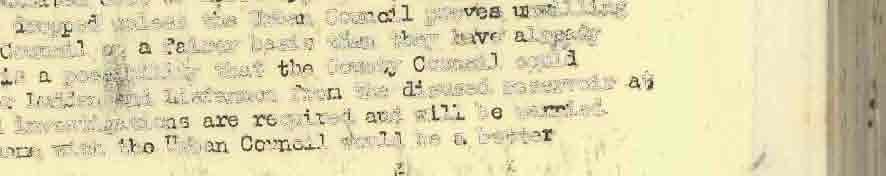 dropped unless the Urban Council proves unwilling
Council on a fairer basis than they have already
is a possibility that the County Council could
Ludden and Lisfannon from the disused reservoir at
investigations are required and will be carried
with the Urban Council would be a better